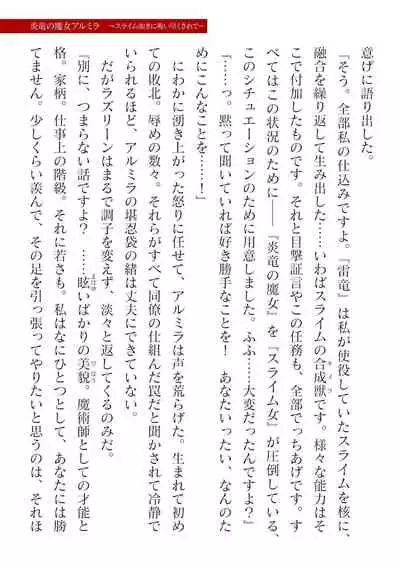 炎竜の魔女アルミラ　～スライム触虐に喰い尽くされて～
意げに語り出した。
「そう。全部私の仕込みですよ。『雷竜』は私が使役していたスライムを核に、
融合を繰り返して生み出した……いわばスライムの合成獣です。様々な能力はそ
こで付加したものです。それと目撃証言やこの任務も、全部でっちあげです。す
べてはこの状況のために――『炎竜の魔女』を『スライム女』が圧倒している、
このシチュエーションのために用意しました。ふふ……大変だったんですよ？」
「……っ。黙って聞いていれば好き勝手なことを！　あなたいったい、なんのた
めにこんなことを……！」
にわかに湧き上がった怒りに任せて、アルミラは声を荒らげた。生まれて初め
ての敗北。辱めの数々。それらがすべて同僚の仕組んだ罠だと聞かされて冷静で
いられるほど、アルミラの堪忍袋の緒は丈夫にできていない。
だがラズリーンはまるで調子を変えず、淡々と返してくるのみだ。
『別に、つまらない話ですよ？　……眩いばかりの美貌。魔術師としての才能と
格。家柄。仕事上の階級。それに若さも。私はなにひとつとして、あなたには勝
てません。少しくらい羨んで、その足を引っ張ってやりたいと思うのは、それほ